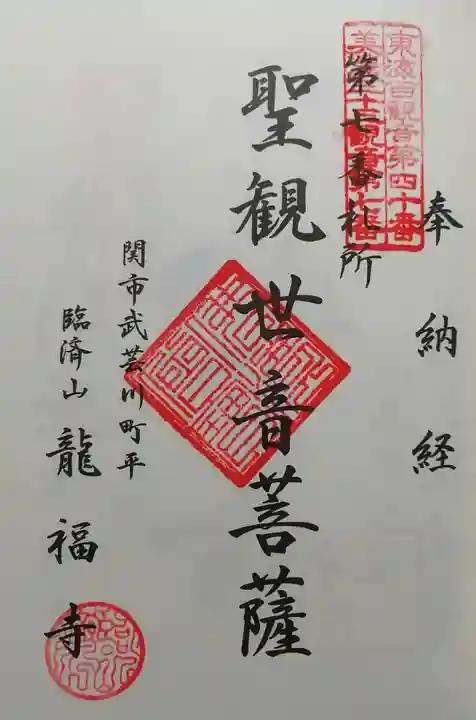 東海百観音第四十番
奉納経
第七番札所
聖観世音菩薩
関市武芸川町平
臨済山 龍福寺